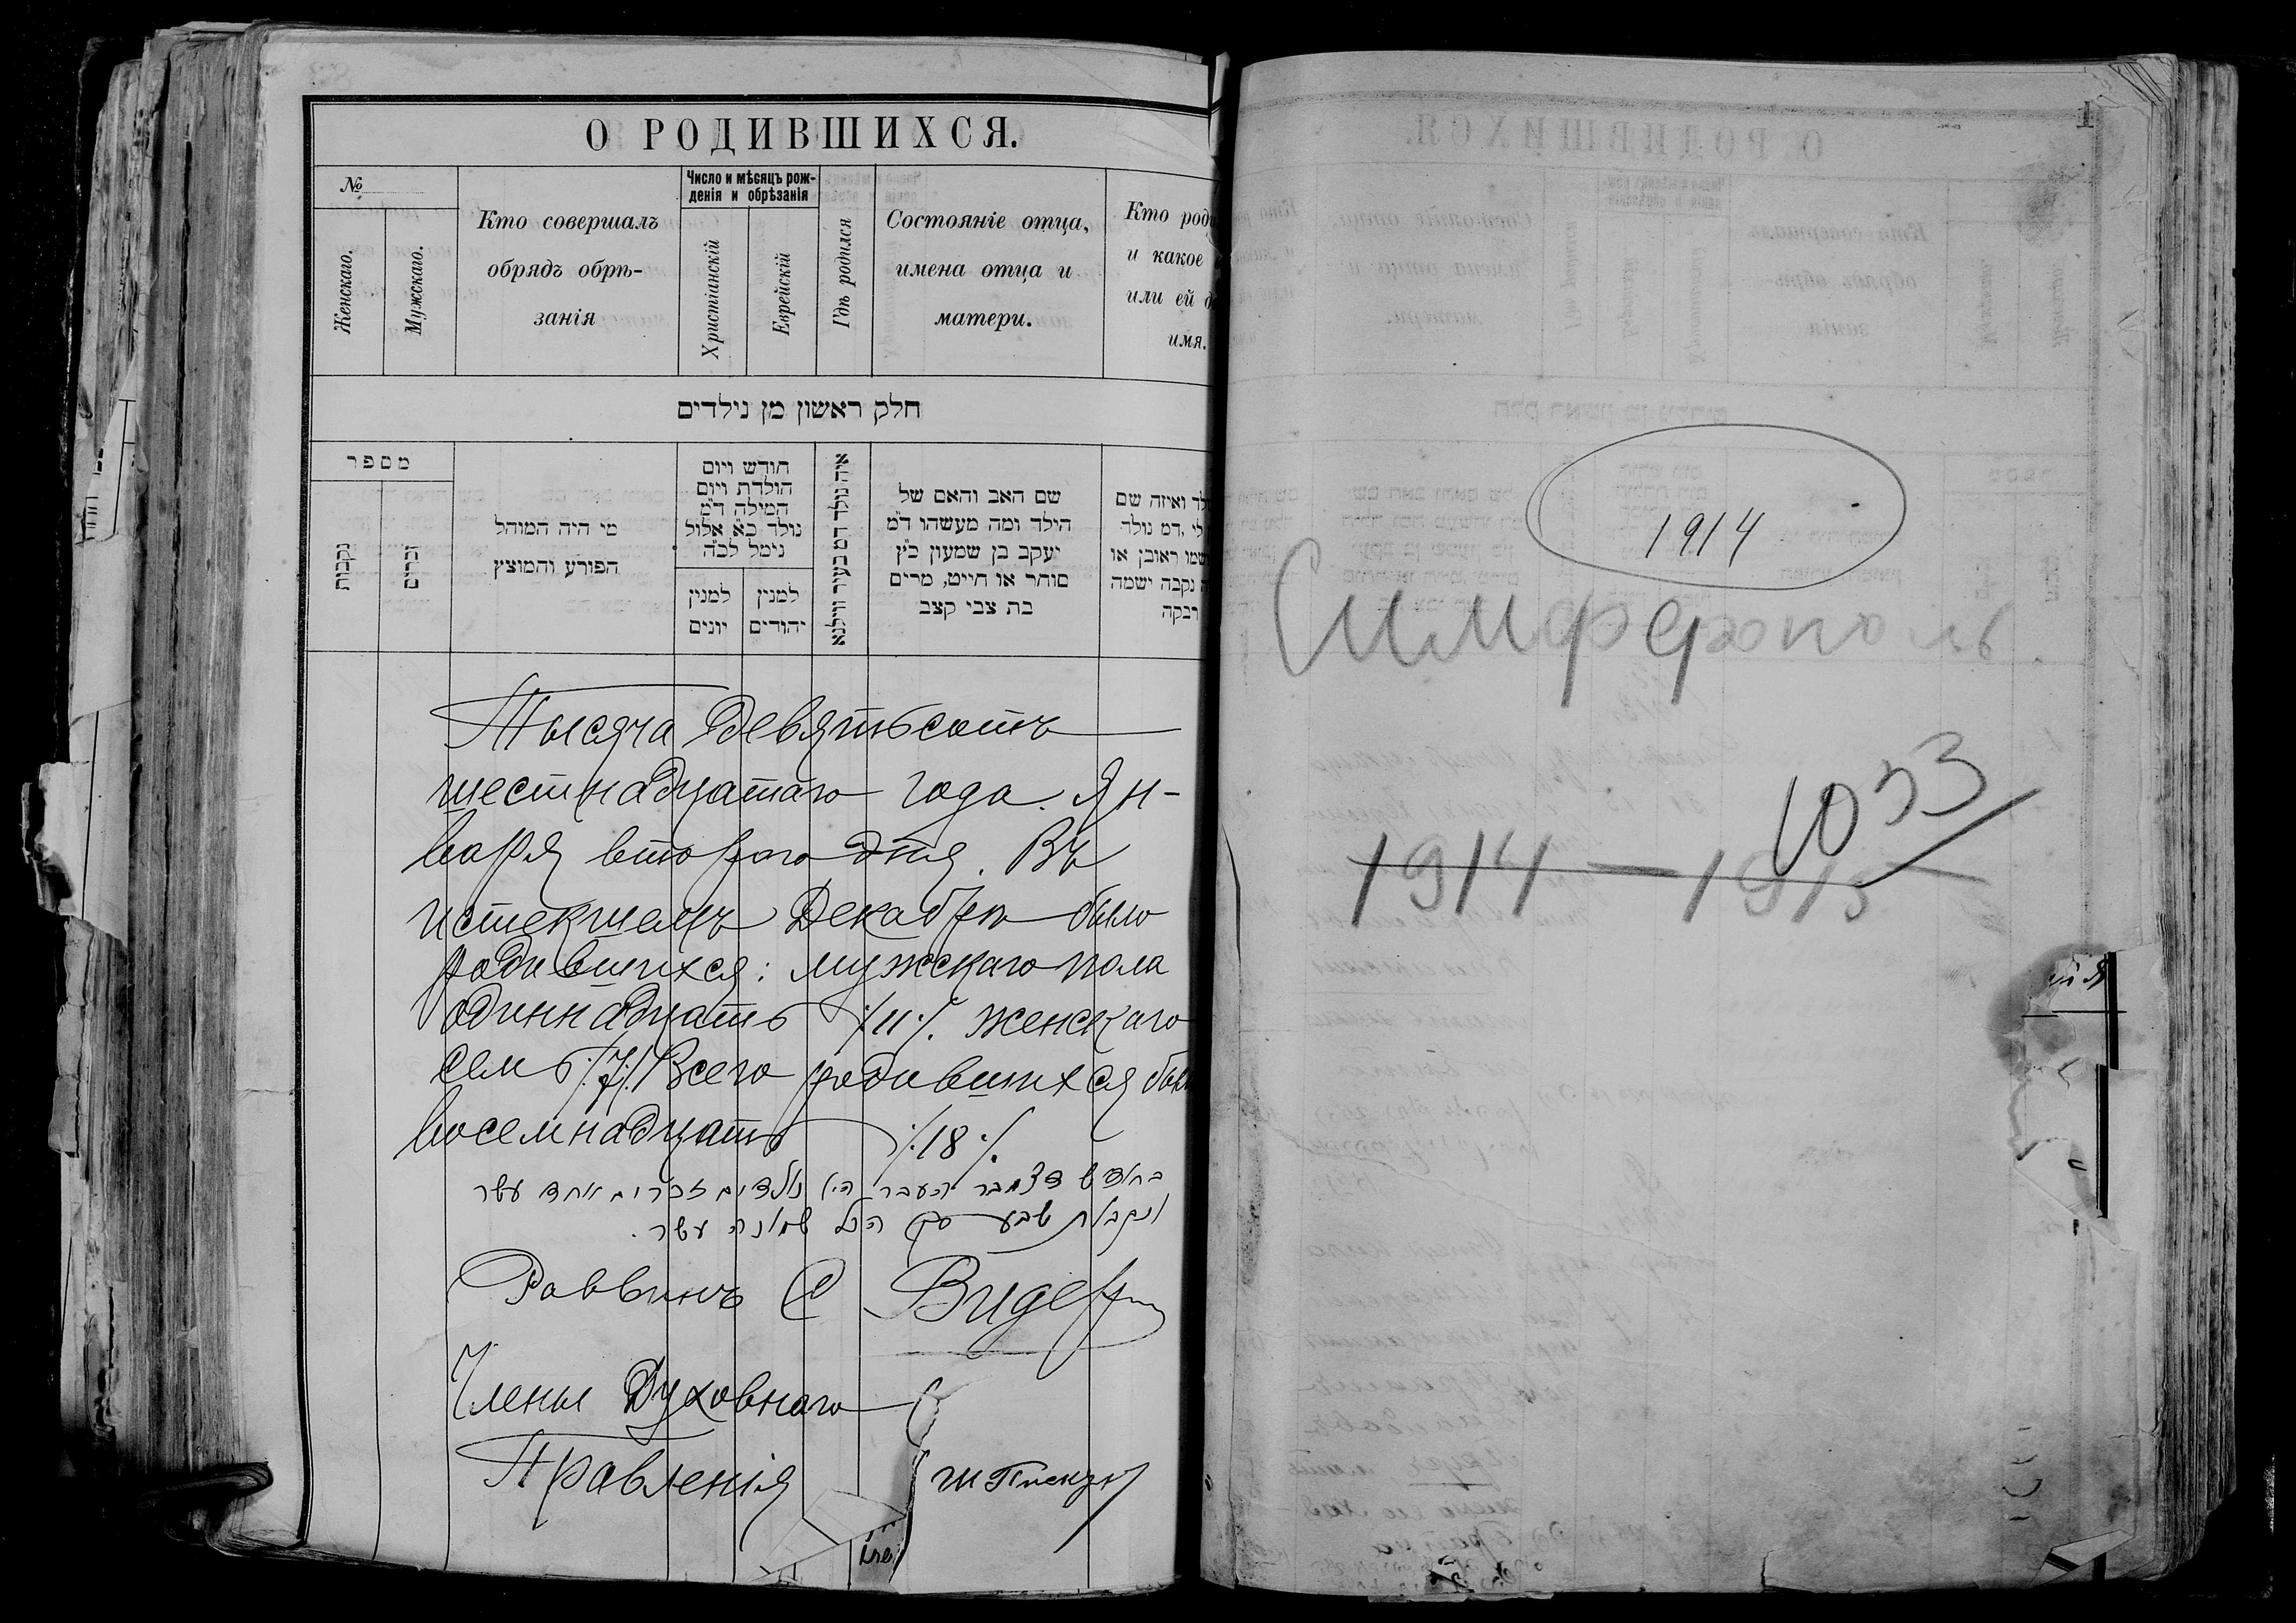 О РОДИВШИХСЯ.
№
Женскаго.
Мужскаго.
Кто совершалъ
обрядъ обрѣ-
занія
Число и мѣсяцъ рож-
денія и обрѣзанія
Христіанскій
Еврейскій
Гдѣ родился
Состояніе отца,
имена отца и
матери.
Кто роди
и какое
или ей д
имя.
חלק ראשון מן נילדים
מספר
נקבות
זכרים
מי היה המוהל
הפורע והמוצץ
חודש ויום
הולדת ויום
המילה ד״מ
נולד כ״א אלול
נימל לכ״ח
למנין
יונים
למנין
יהודים
איה נולד דמ בעיר ווילנא
שם האב והאם של
הילד ומה מעשהו ד״מ
יעקב בן שמעון כ״ץ
סוחר או חייט, מרים
בת צבי קצב
לד ואיזה שם
לי ,דמ נולד
שמו ראובן או
ה נקבה ישמה
רבקה
Тысяча девятьсотъ
шестнадцатаго года. Ян-
варя второго дня. Въ
истекшемъ Декабрѣ было
родившихся: мужскаго пола
одиннадцать /:11:/. женскаго
семь /:7:/ Всего родившихся был
восемнадцать /:18:/.
בחודש דצמבר העבר היו נולדים זכרים אחד עשר
ונקבות שבע סך הכל שמונה עשר.
Раввинъ
Члены Духовнаго
Правленія
1
1914
Симферополь
1033
1914 — 1915